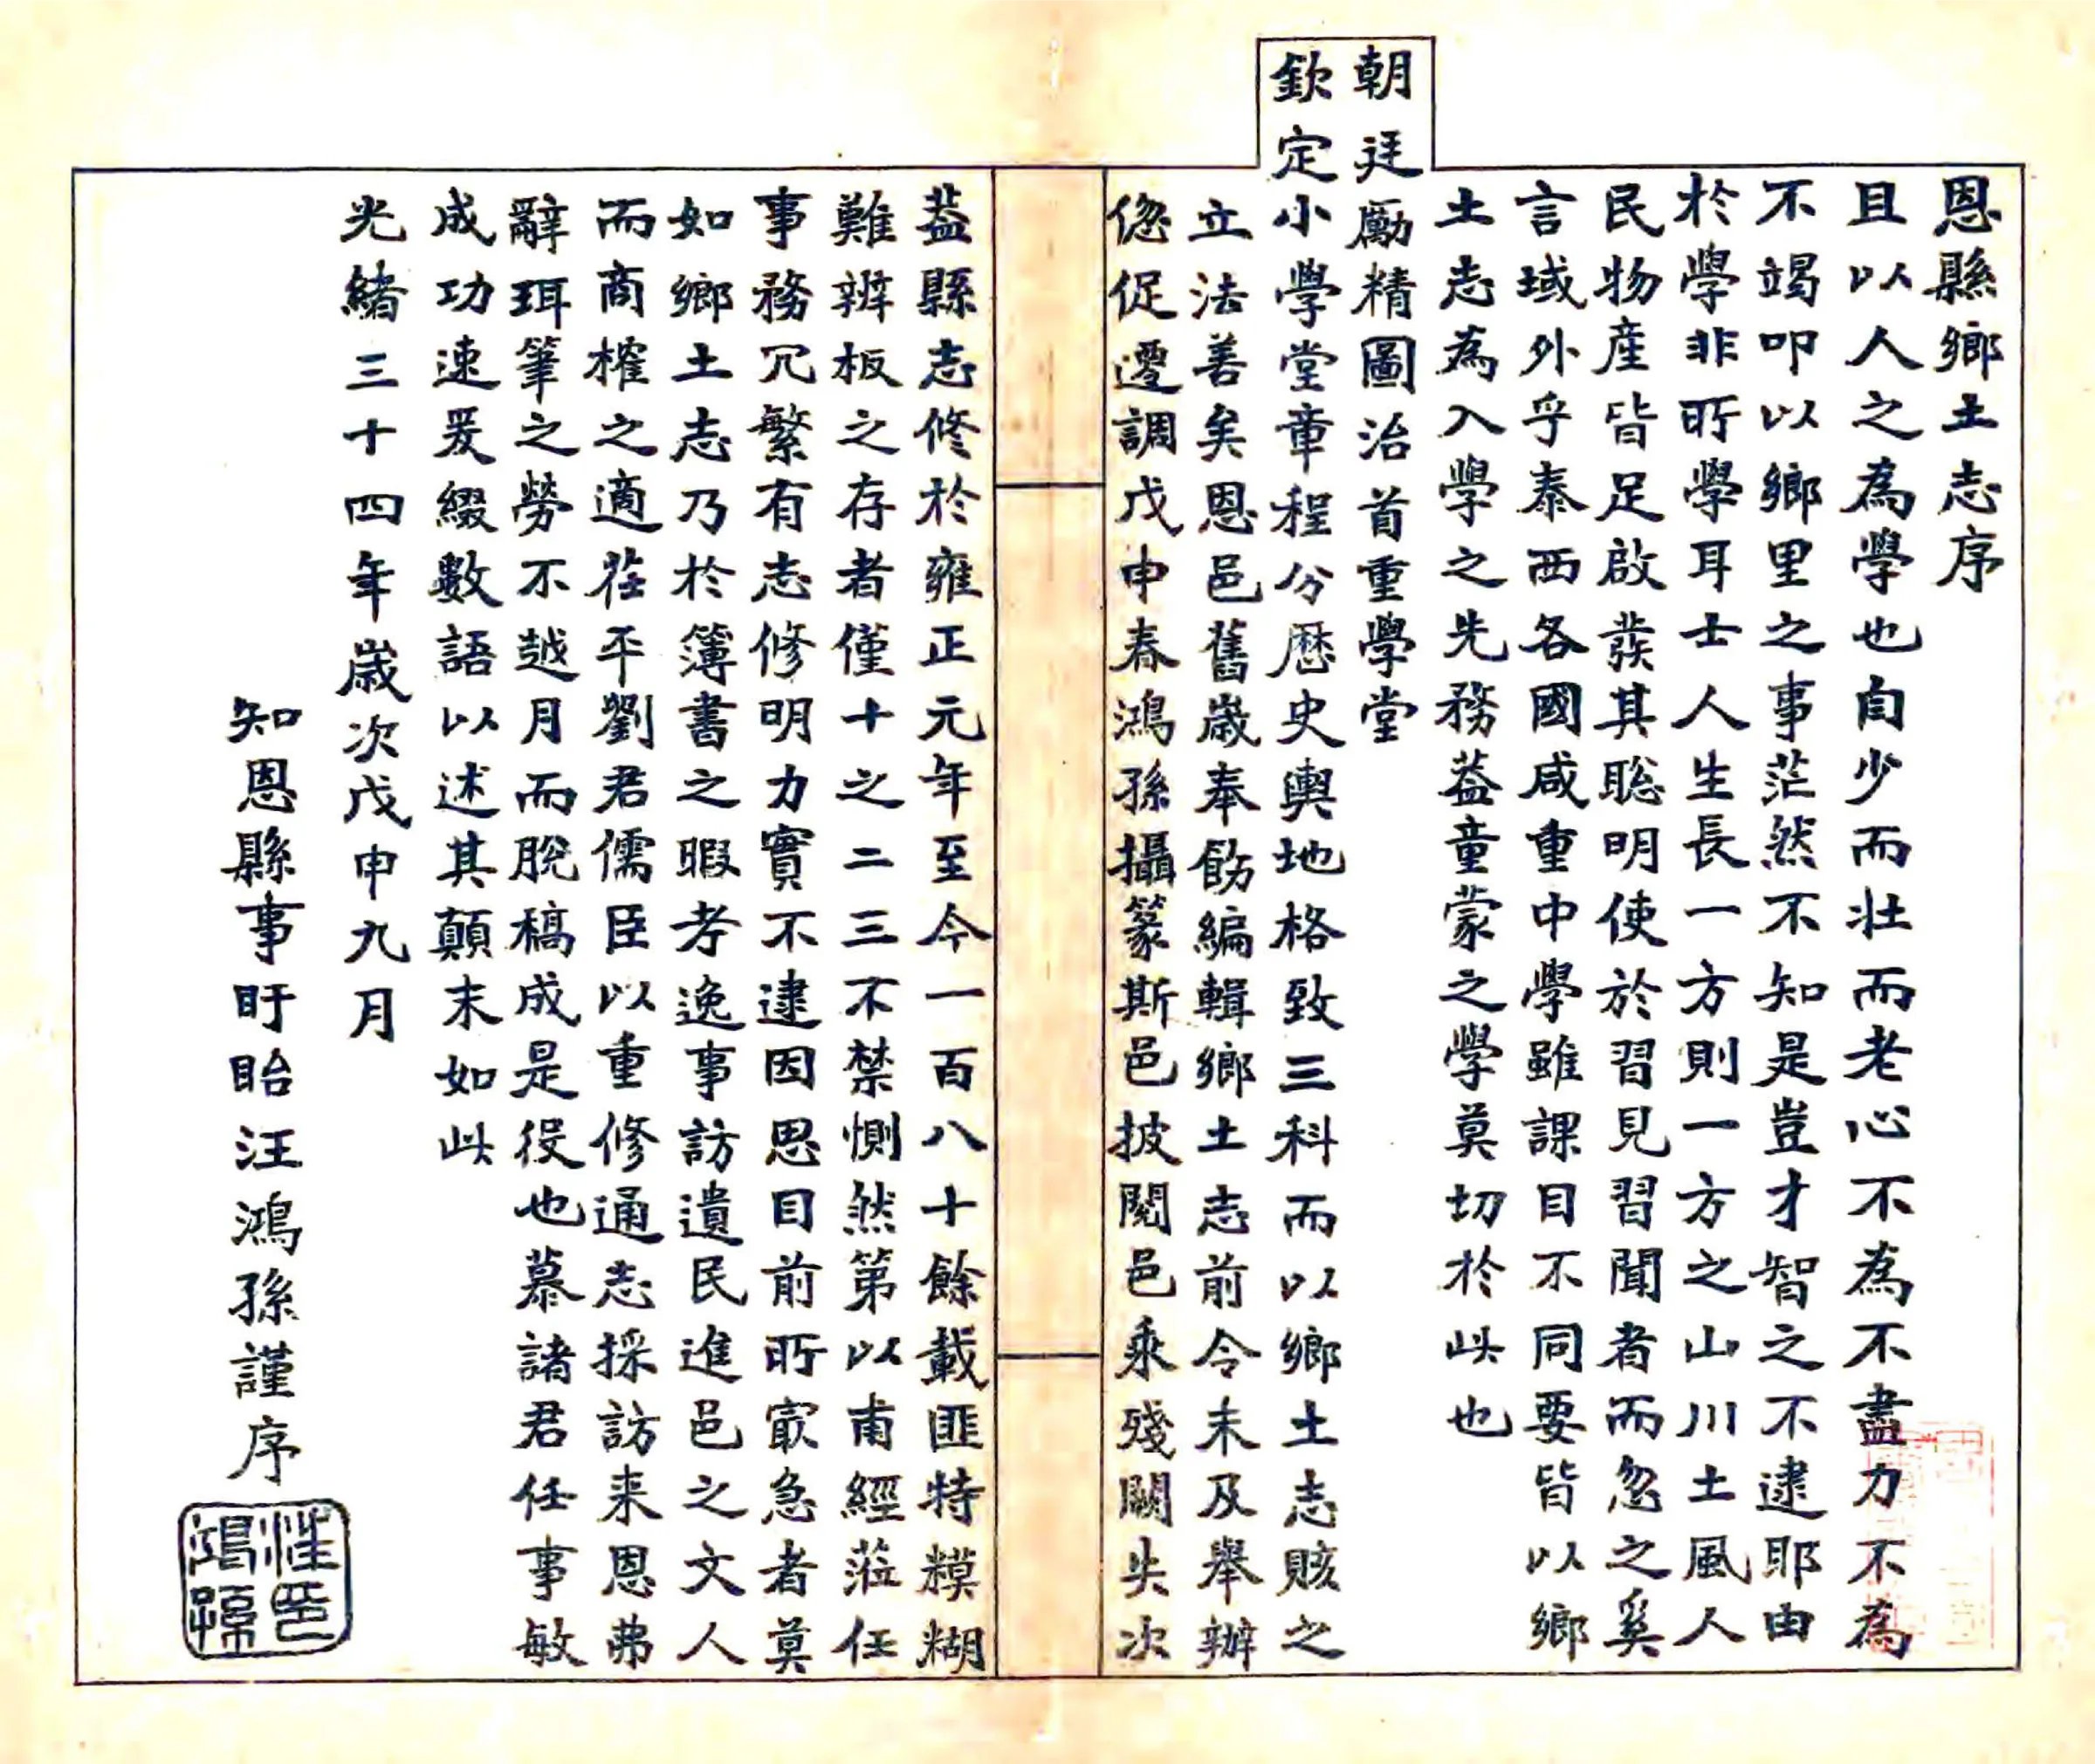 恩縣鄉土志序
且以人之為學也自少而壯而老心不為不盡力不為
不竭叩以鄉里之事茫然不知是豈才智之不逮耶由
於學非所學耳士人生長一方則一方之山川土風人
民物產皆足啟發其聡明使於習見習聞者而忽之奚
言域外乎泰西各國咸重中學雖課目不同要皆以鄉
土志為入學之先務葢童蒙之學莫切於此也
朝廷勵精圖治首重學堂
欽定小學堂章程分歷史輿地格致三科而以鄉土志賅之
立法善矣恩邑舊歲奉飭編輯鄉土志前令未及舉辦
倊促遷調戊申春鴻孫攝篆斯邑披閱邑乘殘闕失次
葢縣志修於雍正元年至今一百八十餘載匪特糢糊
難辨板之存者僅十之二三不禁惻然第以甫經蒞任
事務冗繁有志修明力實不逮因思目前所㝡急者莫
如鄉土志乃於簿書之暇考逸事訪遺民進邑之文人
而商榷之適茌平劉君儒臣以重修通志採訪来恩弗
辭珥筆之勞不越月而脫稿成是役也慕諸君任事敏
成功速爰綴數語以述其顛末如此
光緒三十四年歲次戊申九月
知恩縣事盱眙汪鴻孫謹序
汪鴻孫印